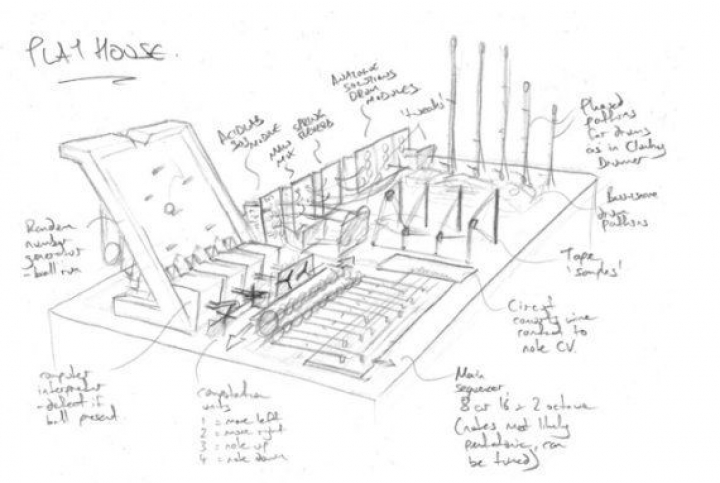 PLAY HOUSE.
ACIDLAB
MODULE
MAIN
MIX
SPRING
REVERB
ANALOGUE
SOLUTIONS
DRUM
MODULES
'tweaks'
Phased
patterns
for drums
as in Clapping
Drummer
drum
patterns
Random
number
generator
- ball run
Tape
'samples'
Circuit
converts wire
contact to
note CV.
computer
interpreter
- detect if
ball present.
computation
units
1 = move left
2 = move right
3 = note up
4 = note down
Main
sequencer,
8 or 16 x 2 octave
(notes most likely
pentatonic, can
be tuned)